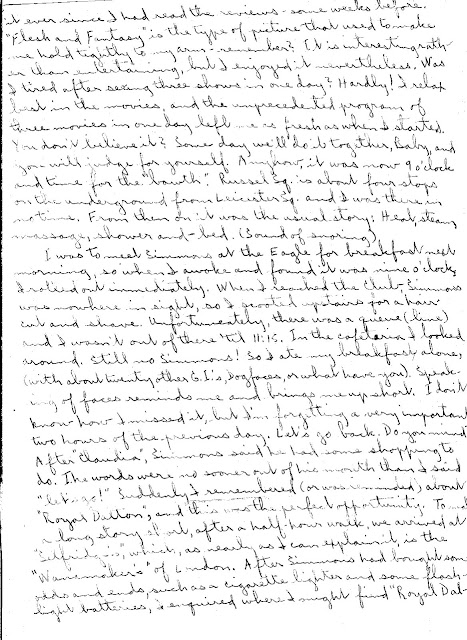 it ever since I had read the reviews some weeks before.
"Flesh and Fantasy" is the type of picture that used to make
me hold tightly to my arm - remember? It is interesting rath-
er than entertaining, but I enjoyed it nevertheless. Was
I tired after seeing three shows in one day? Hardly! I relax
best in the movies, and the unprecedented program of
three movies in one day left me as fresh as when I started.
You don't believe it? Some day we'll do it together, Baby, and
you will judge for yourself. Anyhow, it was now 9 o'clock
and time for the "bawth". Russel Sq. is about four stops
on the underground from Leicester Sq. and I was there in
no time. From then on it was the usual story: Heat, steam,
massage, shower and - bed. (Sound of snoring)
I was to meet Simmons at the Eagle for breakfast next
morning, so when I awoke and found it was nine o'clock,
I raced out immediately. When I reached the Club, Simmons
was nowhere in sight, so I scooted upstairs for a hair
cut and shave. Unfortunately, there was a queue (line)
and I wasn't out of there 'til 11:15. In the cafeteria I looked
around. Still no Simmons! So I ate my breakfast alone,
(with about twenty other G.I.'s, Dogfaces, or what have you). Speak-
ing of faces reminds me and brings me up short. I don't
know how I missed it, but I'm forgetting a very important
two hours of the previous day. Let's go back, Do you mind?
After "Claudia", Simmons said he had some shopping to
do. The words were no sooner out of his mouth than I said
"let's go!" Suddenly I remembered (or was reminded) about
"Royal Dalton", and this was the perfect opportunity. To
a long story short, after a half hour walk, we arrived at
"Selfridge's", which, as nearly as I can explain it, is the
"Wannemaker's" of London. After Simmons had bought some
odds and ends, such as a cigarette lighter and some flash-
light batteries, I enquired where I might find "Royal Dal-